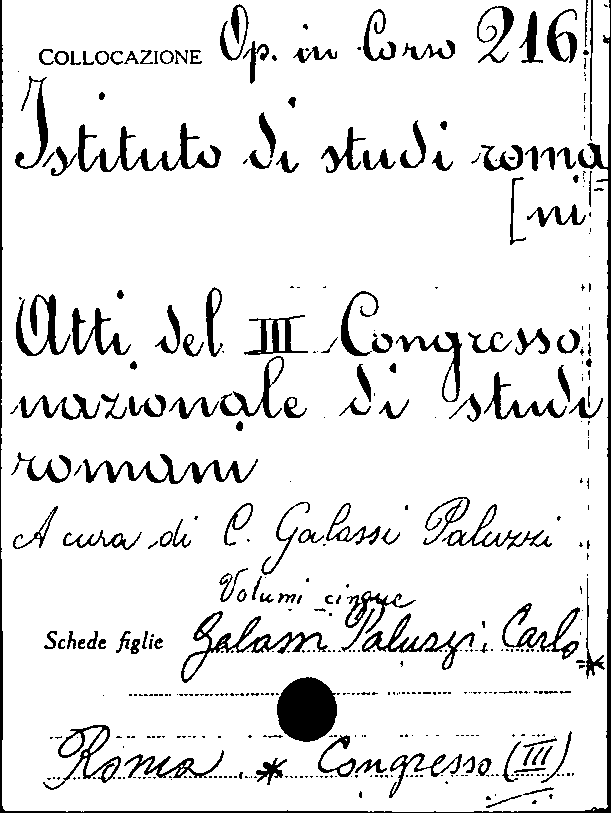 COLLOCAZIONE Op. in Corso 216
Istituto di studi roma
[ni
Atti del III Congresso
nazionale di studi
romani
A cura di C. Galassi Paluzzi
Volumi cinque
Schede figlie Galassi Paluzzi, Carlo *
Roma * Congresso (III)